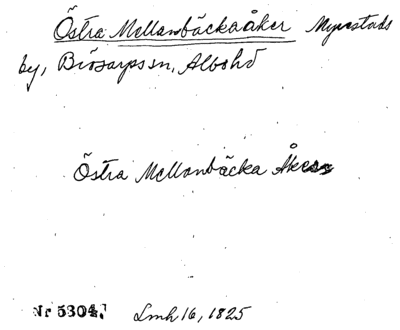 Östra Mellanbäckaåker Myrestads
by, Biösarps sn, Albo hd
Östra Mellanbäcka Åker
Nr 5304. Lmh 16, 1825